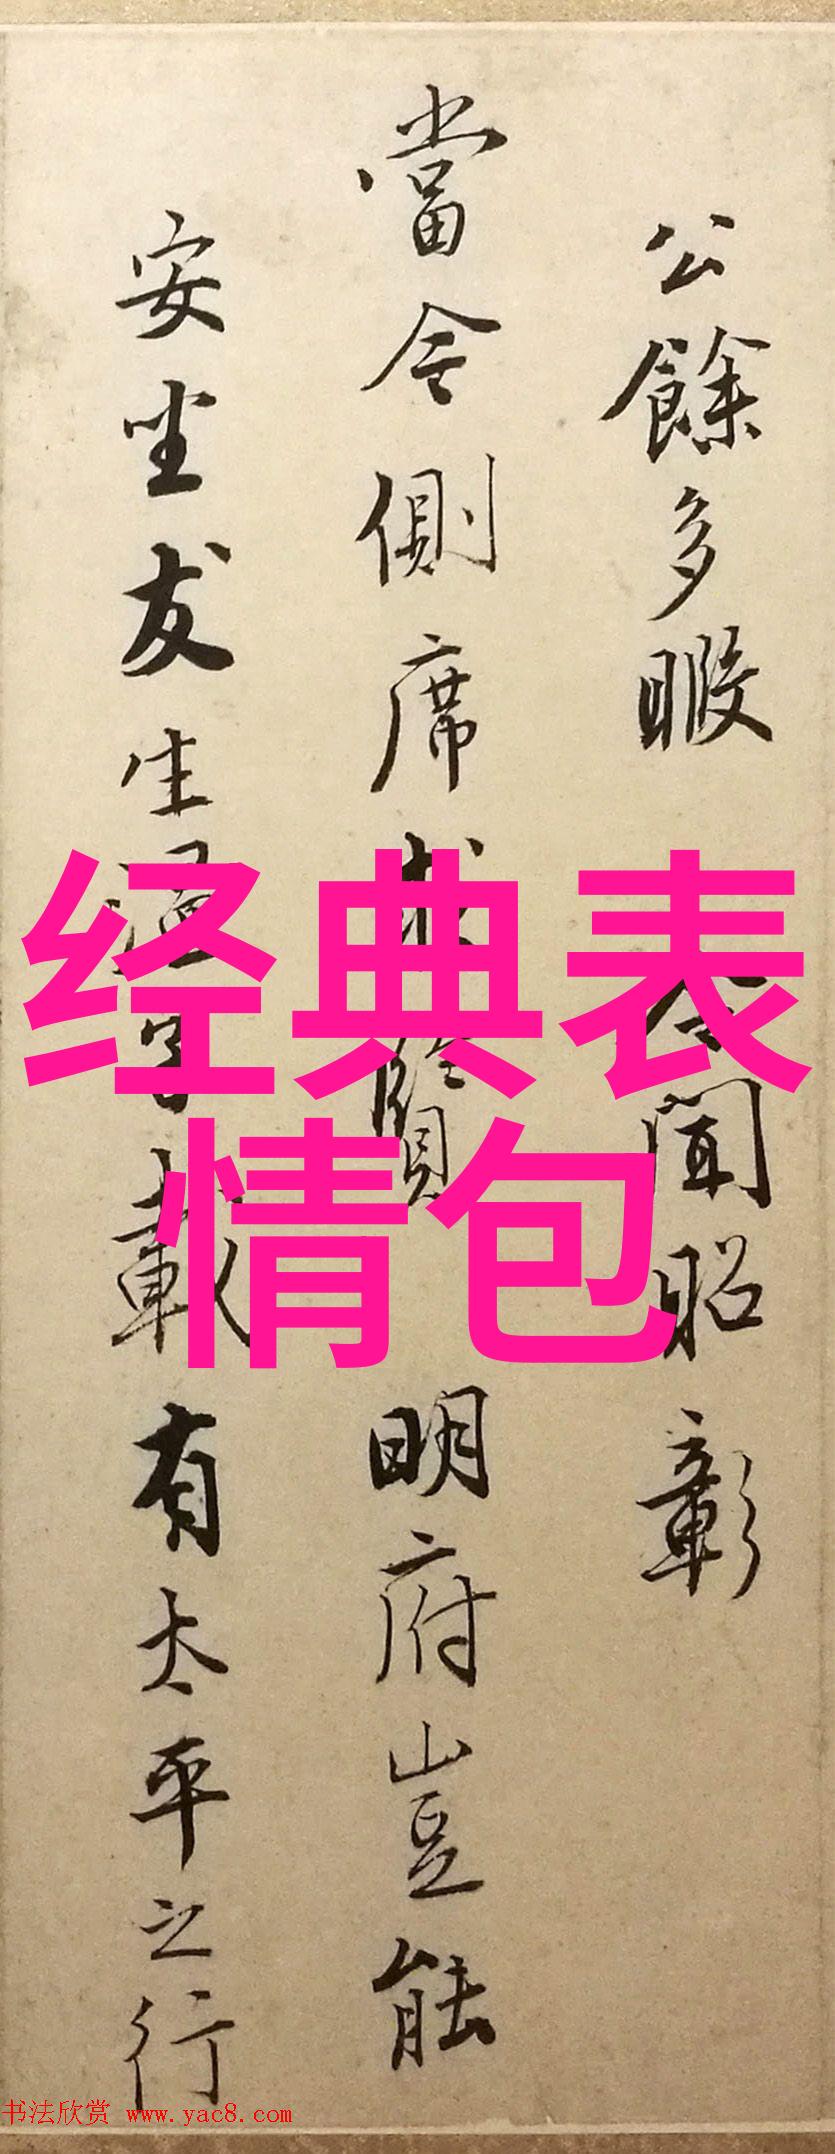 公餘多暇 令聞昭彰
當今側席求賢 明府豈能
安坐友生還字載有太平之行
经典表
情包
书法欣赏 www.yac8.com